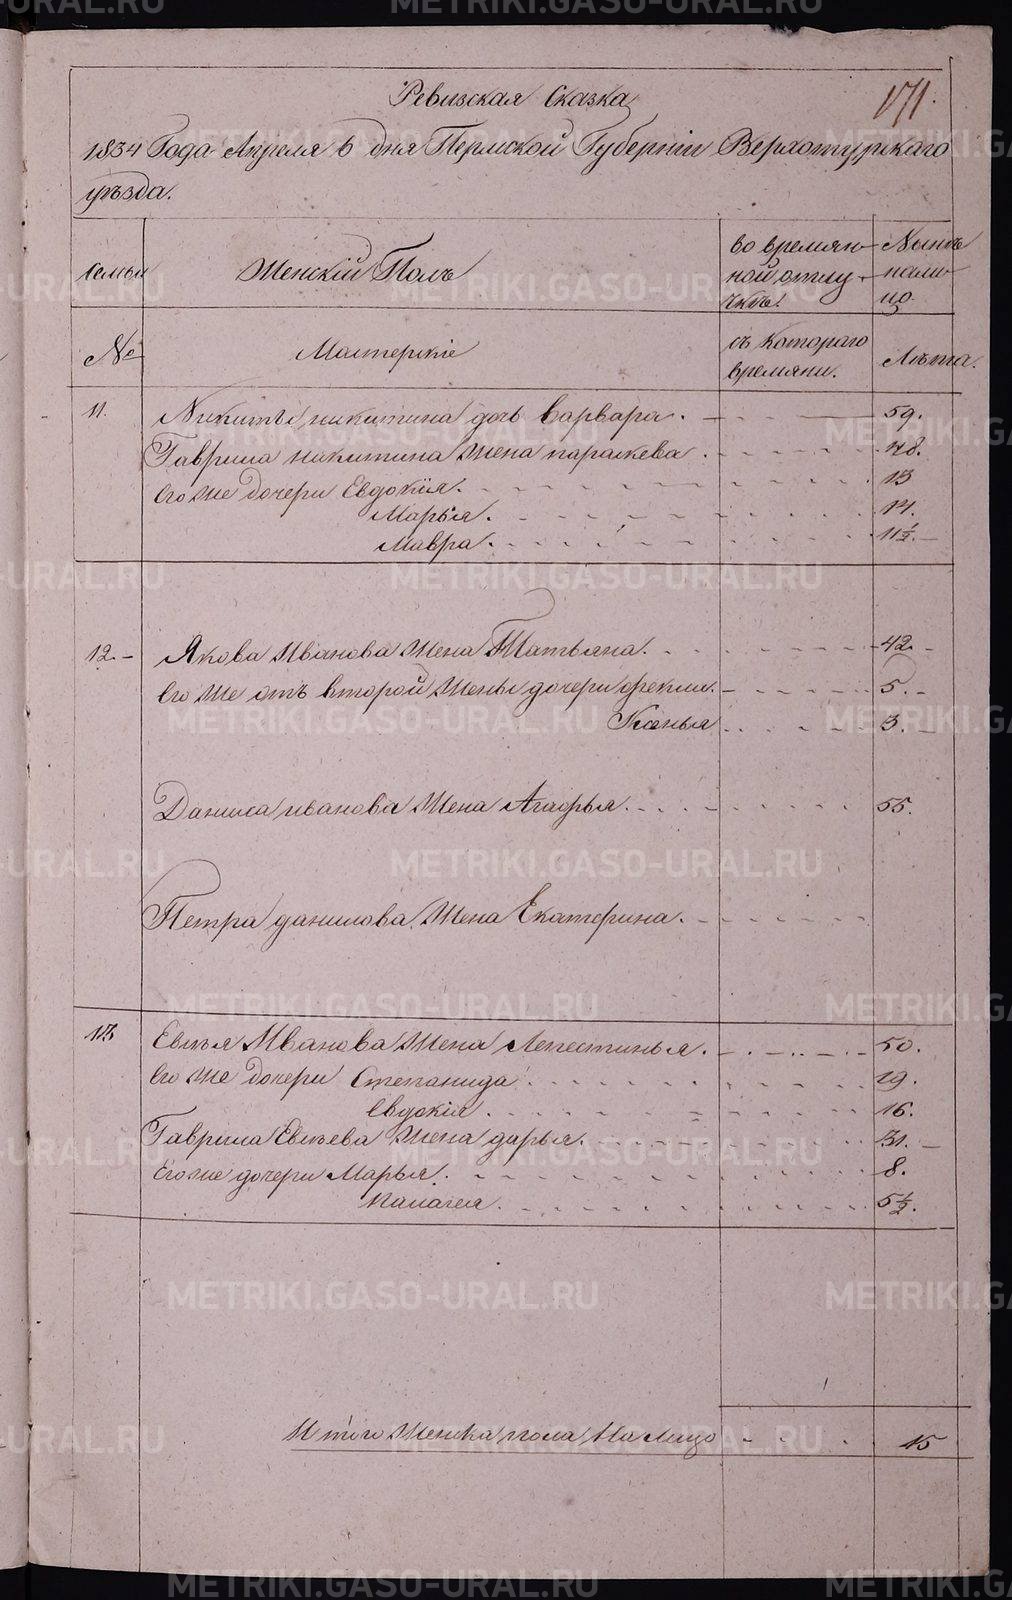 171.
Ревизская Сказка
1834 Года Апреля 6 дня Пермской Губернiи Верхотурскаго
уѣзда.
семьи
Женскiй Полъ
во времян-
ной отлу-
чкѣ.
Нынѣ
нали-
цо.
№
Мастерскiе
съ котораго
времяни.
Лѣта.
11. Никиты никитина дочь Варвара. 59.
Гаврила никитина жена парасковья 48.
Его же дочери Евдокiя. 13
Марья. 14.
Мавра. 11½.
12. Якова Иванова жена Татьяна. 42.
Его же отъ второй жены дочери 5.
Ксенья 3.
Данила иванова жена Агафья. 55.
Петра данилова жена Екатерина.
13 Евсѣя Иванова жена 50.
Его же дочери Степанида 19.
Евдокiя. 16.
Гаврила Евсѣева жена дарья. 31.
Его же дочери Марья. 8.
палагея. 5½.
Итого женска пола на лицо 15
METRIKI.GASO-URAL.RU